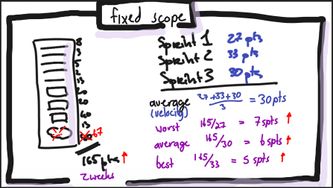 fixed scope
Sprint 1 27 pts
Sprint 2 33 pts
Sprint 3 30 pts
average (velocity) 27+33+30 / 3 = 30pts
worst 165/27 = 7 spts ↑
average 165/30 = 6 spts ↑
best 165/33 = 5 spts ↑
8
3
5
2
13
20
20
40
13
165 pts ↑
2 weeks